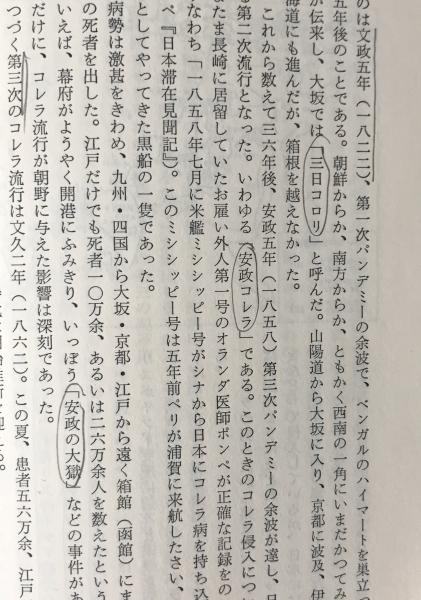 のは文政五年（一八二二）、第一次パンデミーの余波で、ベンガルのハイマートを巣立っ
五年後のことである。朝鮮からか、南方からか、ともかく西南の一角にいまだかつてみ
が伝来し、大坂では「三日コロリ」と呼んだ。山陽道から大坂に入り、京都に波及、伊
海道にも進んだが、箱根を越えなかった。
これから数えて三六年後、安政五年（一八五八）第三次パンデミーの余波が達し、日
る第二次流行となった。いわゆる「安政コレラ」である。このときのコレラ侵入につい
たまたま長崎に居留していたお雇い外人第一号のオランダ医師ポンペが正確な記録をの
なわち「一八五八年七月に米艦ミシシッピー号がシナから日本にコレラ病を持ち込
ペ『日本滞在見聞記』）。このミシシッピー号は五年前ペリが浦賀に来航したさい、
としてやってきた黒船の一隻であった。
病勢は激甚をきわめ、九州・四国から大坂・京都・江戸から遠く箱館（函館）にま
の死者を出した。江戸だけでも死者一〇万余、あるいは二六万余人を数えたという
いえば、幕府がようやく開港にふみきり、いっぽう「安政の大獄」などの事件があ
だけに、コレラ流行が朝野に与えた影響は深刻であった。
つづく第三次のコレラ流行は文久二年（一八六二）。この夏、患者五六万余、江戸